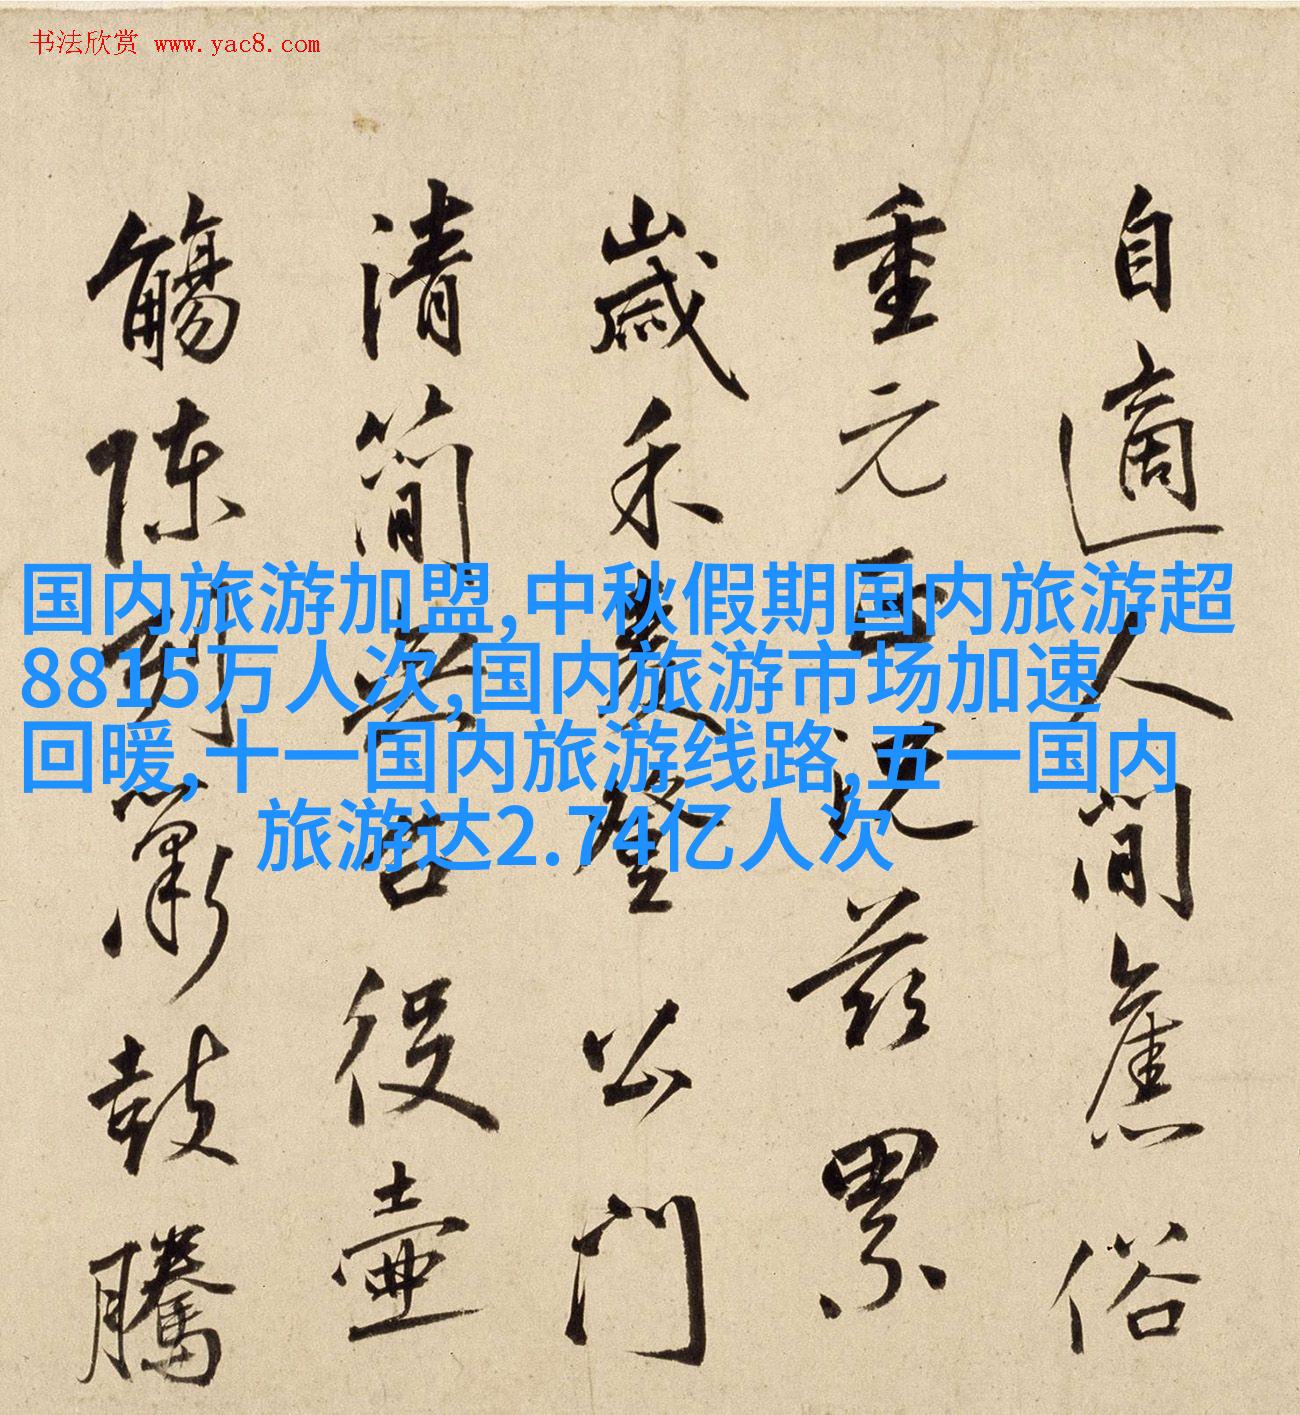 书法欣赏 www.yac8.com
自適人間舊俗
重元況茲累
歲禾麥登公門
清簡無苦役壺
觴陳簫鼓騰
国内旅游加盟,中秋假期国内旅游超
8815万人次,国内旅游市场加速
回暖,十一国内旅游线路,五一国内
旅游达2.74亿人次